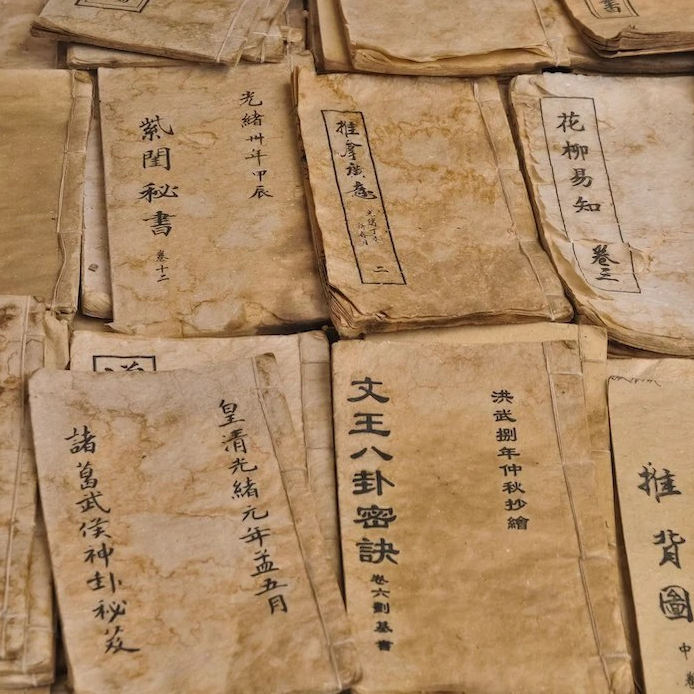 光緒卅年甲辰
紫閨秘書 卷十二
推拿廣意
二
花柳易知
卷三
皇清光緒元年孟五月
諸葛武侯神卦秘笈
洪武捌年仲秋抄繪
文王八卦密訣
卷六劉基書
推背圖
中